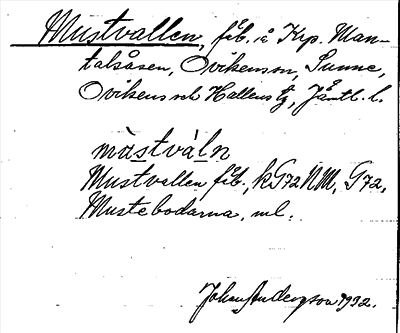 Mustvallen, fåb. å Krp. Man-
talsåsen, Ovikensn, Sunne,
Ovikens och Hallens tg, Jämtl. l.
mùstvàln
Mustvallen fåb., kG72NM, G72,
Mustebodarna, ml.
Johan Anderzson 1932.